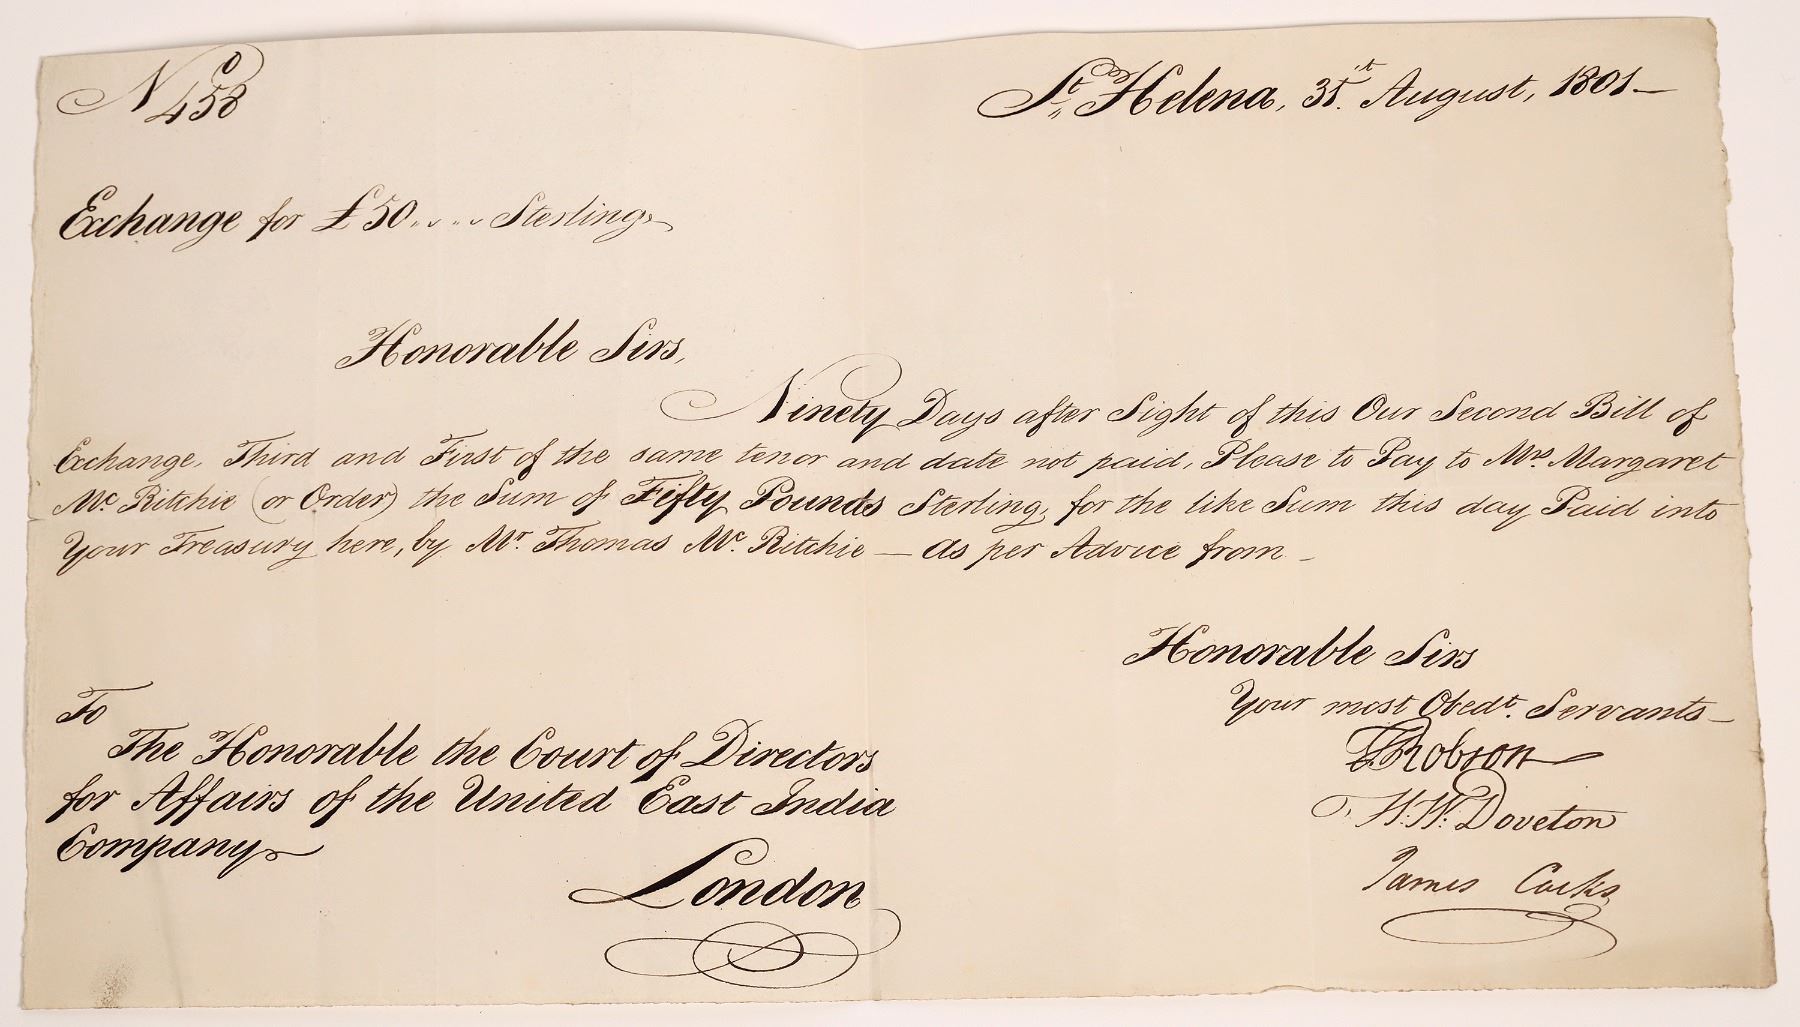 No 458
St. Helena, 31st August, 1801
Exchange for £50 .. .. Sterling
Honorable Sirs,
Ninety Days after Sight of this Our Second Bill of
Exchange, Third and First of the same tenor and date not paid, Please to Pay to Mrs. Margaret
Mc. Ritchie (or Order) the Sum of Fifty Pounds Sterling, for the like Sum this day Paid into
Your Treasury here, by Mr. Thomas Mc. Ritchie — As per Advice from —
Honorable Sirs
Your most Obedt. Servants —
Robson
W. W. Doveton
James Cocks
To
The Honorable the Court of Directors
for Affairs of the United East India
Company
London